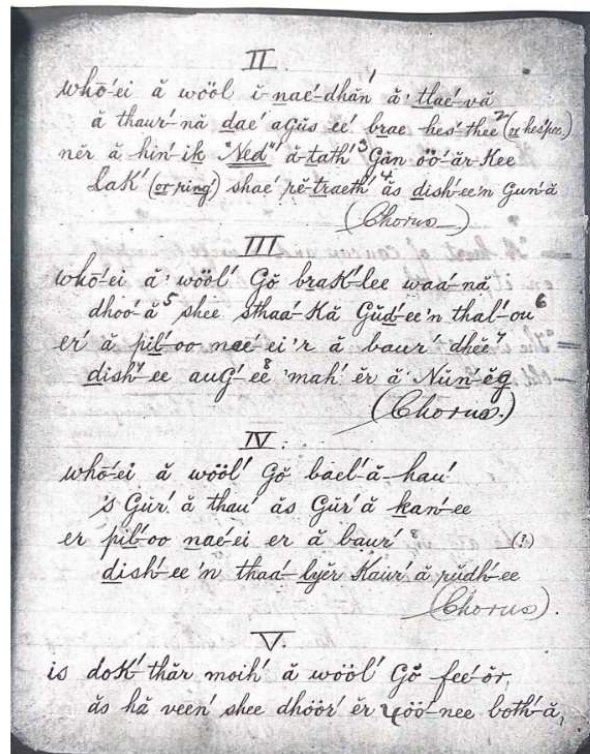 II.
whṓ-ei ă wŏŏl ĭ nae´-dhăn´ ă' tlae´-vă
ă thaur´-nă dae´ agŭs ee´ brae hes´-thee² (or hes´pee.)
nĕr ă hin´-ik "Ned"' ă-tath´³ Găn ŏŏ´-ăr-Kee
Lak´ (or ping´) shae´ rĕ-traeth´⁴ ăs dish´-ee'n gun´-ă
(Chorus)
III
whō´-ei ă' wŏŏl´ Gŏ brak´-lee waa´-nă
dhoó-ă⁵ shee sthaa´-Kă Gŭd´-ee'n thal´-ou⁶
er´ ă pil´-oo nae´-ei'r ă baur´ dhĕe⁷
dish´-ee auG´-ee⁸ 'mah´ ĕr ă' Nŭn´-ĕg.
(Chorus.)
IV.
whō´-ei ă wŏŏl´ Gŏ bael´-ă-hau´
's Gŭr´ ă thau´ ăs Gŭr´ă kan´-ee
er pil´-oo nae´-ei er ă baur´ (?)
dish´-ee'n thaa´-lyĕr Kaur´ ă pŭdh´-ee
(Chorus).
V.
is dok´thăr moih´ ă wŏŏl´ Gŏ fee´-ŏr,
ăs hă veen´ shee dhŏŏr´ ĕr yŏŏ´-nee both´-ă,